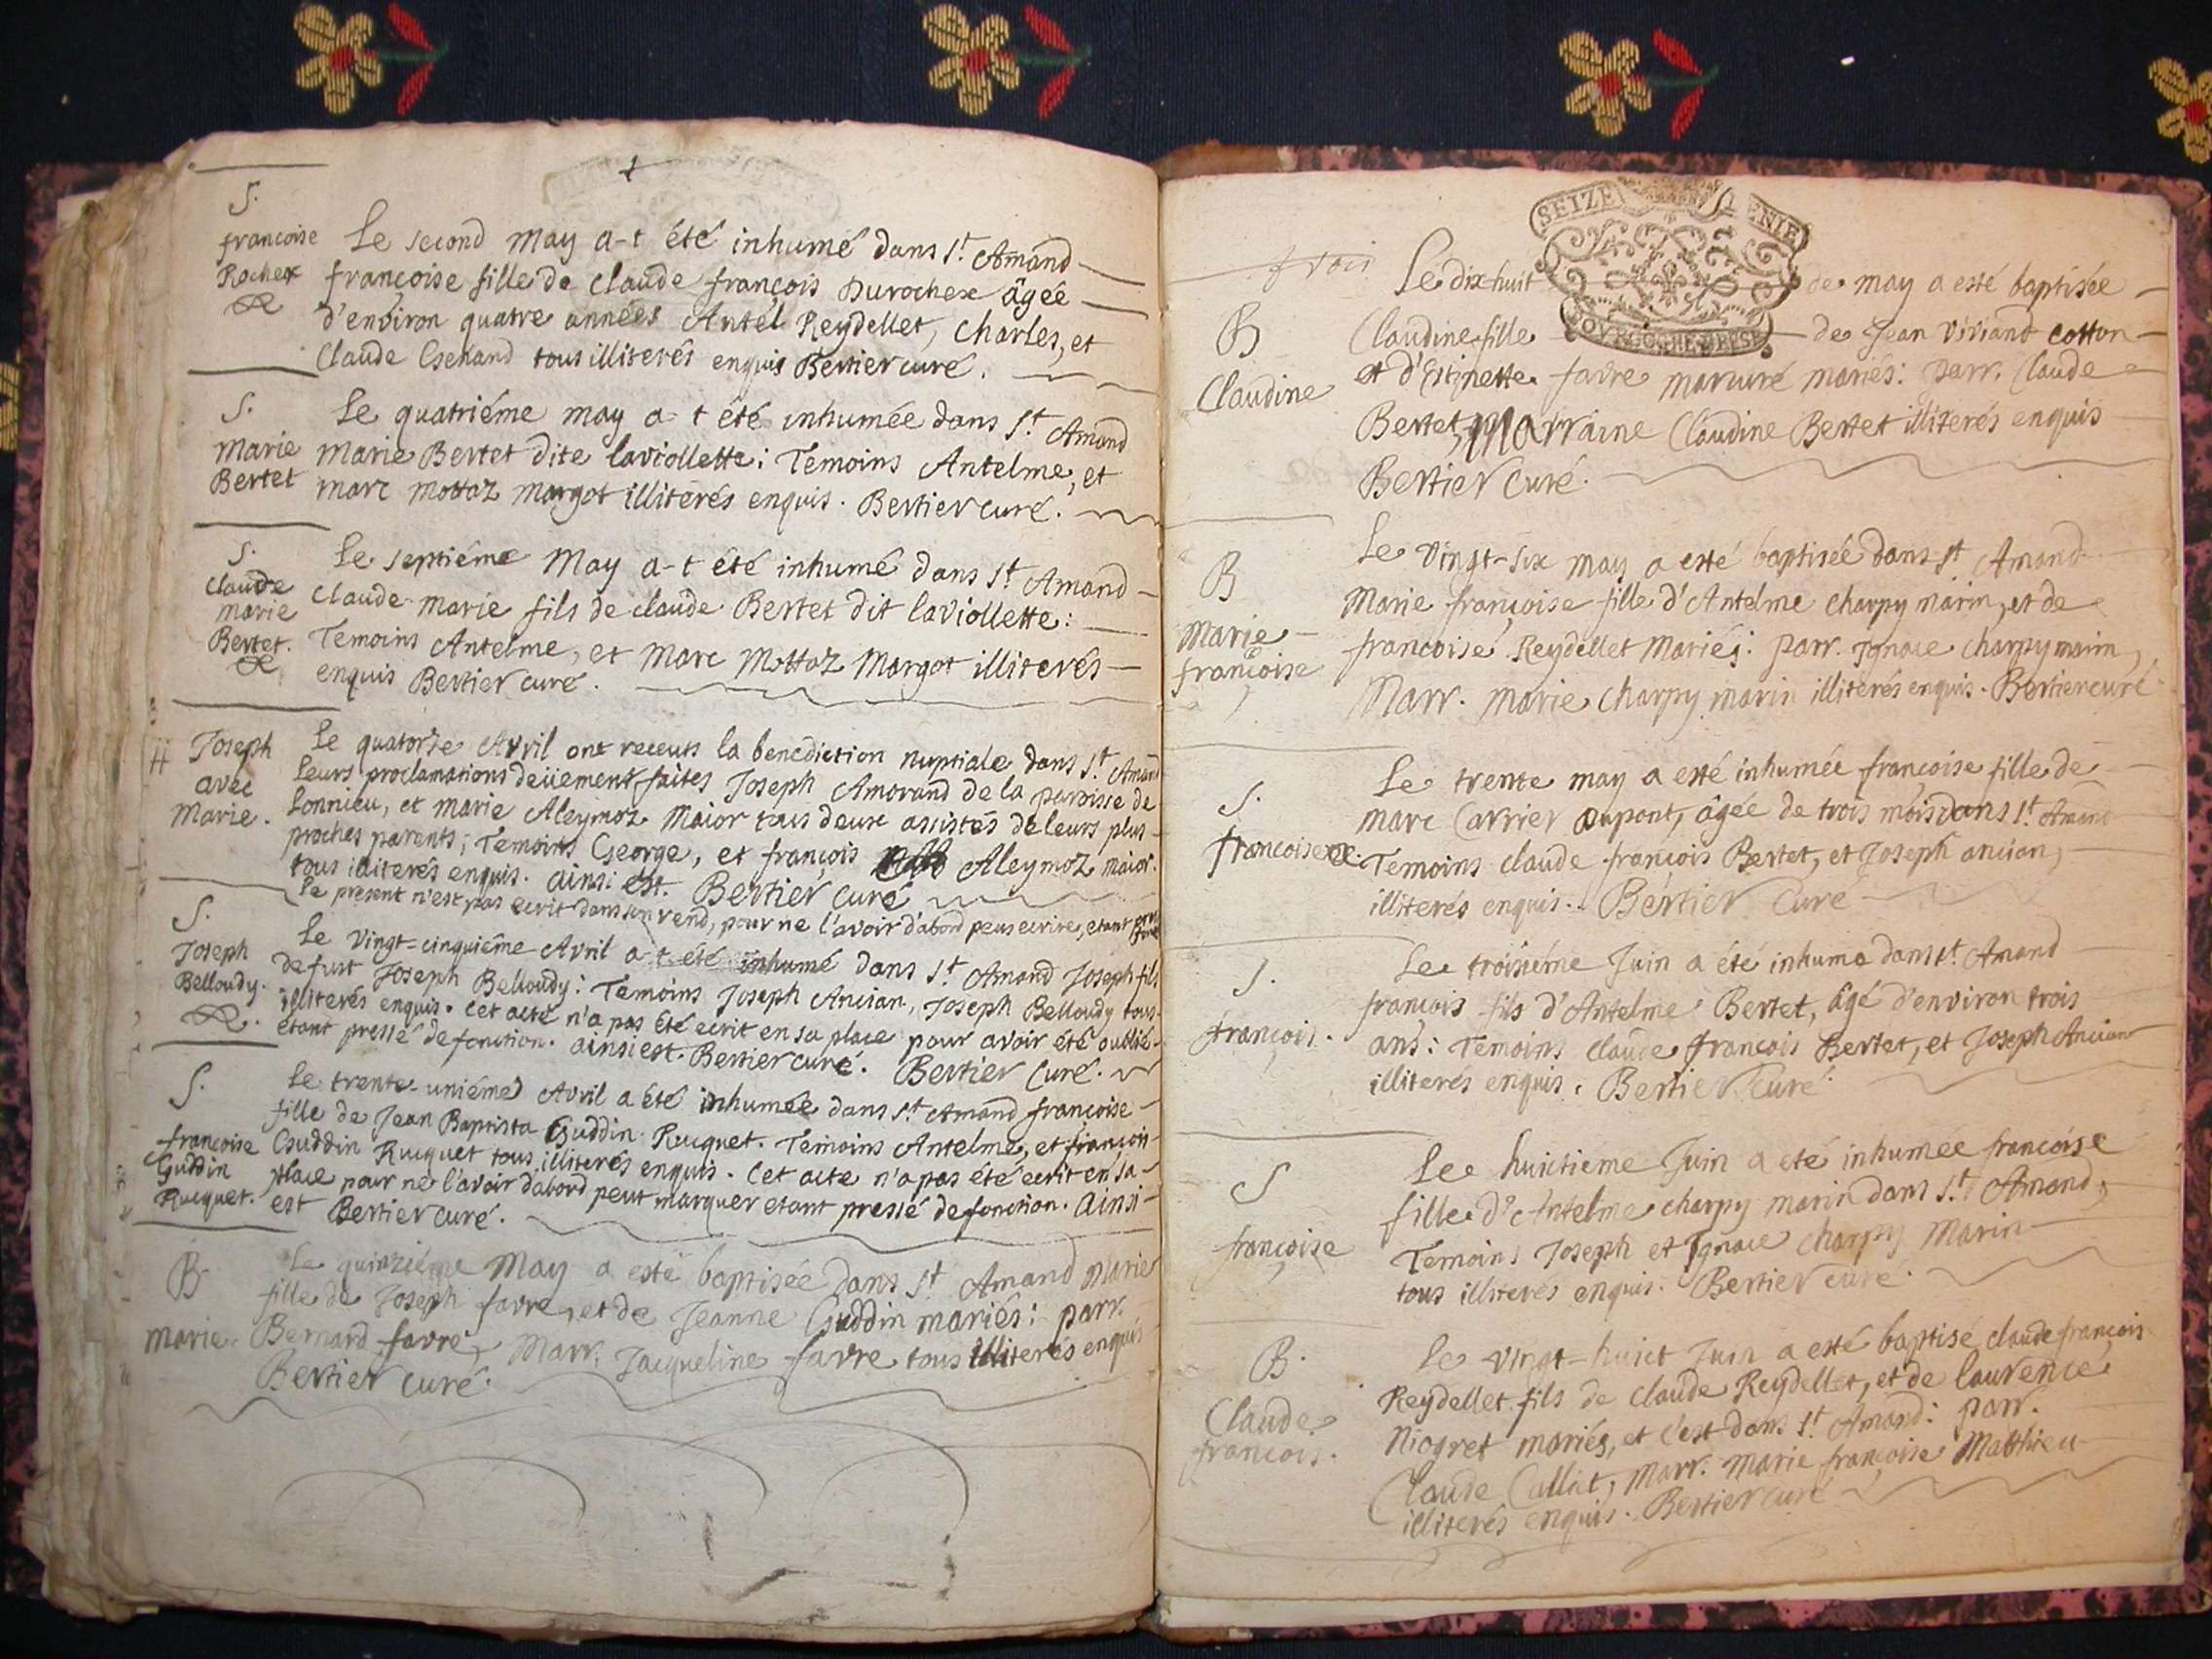 S.
francoise
Rochex
Le second May a-t été inhumé dans St. Amand
françoise fille de claude françois Durochex âgée
d'environ quatre années Antel. Reydellet, Charles, et
Claude tous illiterés enquis Bertier curé.
S.
Marie
Bertet
Le quatriéme may a-t été inhumée dans St. Amand
Marie Bertet dite laviollette: Temoins Antelme, et
marc mottaz margot illiterés enquis. Bertier curé.
S.
Claude
marie
Bertet.
Le septiéme May a-t été inhumé dans St. Amand
Claude marie fils de claude Bertet dit laviollette:
Temoins Antelme, et Marc Mottaz Margot illiterés
enquis Bertier curé.
Joseph
avec
Marie.
Le quatorze Avril ont receuts la benediction nuptiale dans St. Amand
Leurs proclamations deüement faites Joseph Amorand de la paroisse de
Lonnieu, et marie Aleymoz Maior tous deux assistés de leurs plus
proches parents; Temoins George, et françois Aleymoz maior.
tous illiterés enquis. ainsi est. Bertier curé
Le present n'est pas ecrit dans son rend, pour ne l'avoir d'abord peus ecrire, etant
S.
Joseph
Belloudy.
Le Vingt-cinquiéme Avril a-t été inhumé dans St. Amand Joseph fils
de fust Joseph Belloudy: Temoins Joseph Ancian, Joseph Belloudy tous
illiterés enquis. Cet acte n'a pas été ecrit en sa place pour avoir été oublié
etant pressé de fonction. ainsi est. Bertier curé. Bertier Curé.
S.
françoise
Guddin
Rucquet.
Le trente-uniéme Avril a été inhumée dans St. Amand françoise
fille de Jean Baptista Guddin Rucquet. Temoins Antelme, et françois
Guddin Rucquet tous illiterés enquis. Cet acte n'a pas été ecrit en sa
place pour ne l'avoir dabord peut marquer etant pressé de fonction. Ainsi
est Bertier curé.
B
marie.
Le quinziéme May a esté baptisée dans St Amand Marie
fille de Joseph favre, et de Jeanne Guddin mariés: parr.
Bernard favre, Marr. Jacqueline favre tous illiterés enquis
Bertier curé.
SEIZE
trois
B
Claudine
Le dix-huit de may a esté baptisée
Claudine fille de Jean Viviand cotton
et d'Estinette favre marcuré mariés: parr. Claude
Bertet, Marraine Claudine Bertet illiterés enquis
Bertier Curé.
B
Marie
françoise
Le Vingt-six may a esté baptisée dans St Amand
Marie françoise fille d'Antelme charpy marin, et de
francoise Reydellet Mariés: parr. Ignace charpy marin,
Marr. marie charpy marin illiterés enquis. Bertier curé
S.
francoise
Le trente may a esté inhumée françoise fille de
marc Carrier Dupont, âgée de trois mois dans St. Amand
Temoins claude françois Bertet, et Joseph ancian,
illiterés enquis.. Bertier Curé
S.
françois.
Le troisiéme Juin a été inhumé dans St. Amand
françois fils d'Antelme Bertet, âgé d'environ trois
ans: Temoins claude françois Bertet, et Joseph Ancian
illiterés enquis. Bertier Curé.
S
françoise
Le huictieme Juin a eté inhumée françoise
fille d'Antelme charpy marin dans St. Amand,
Temoins Joseph et Ignace charpy Marin
tous illiterés enquis. Bertier curé.
B.
Claude
françois.
Le vingt-huict Juin a esté baptisé claude françois
Reydellet fils de claude Reydellet, et de laurence
Niogret mariés, et c'est dans St. Amand: parr.
Claude Callat, Marr. marie françoise Matthieu
illiterés enquis. Bertier curé